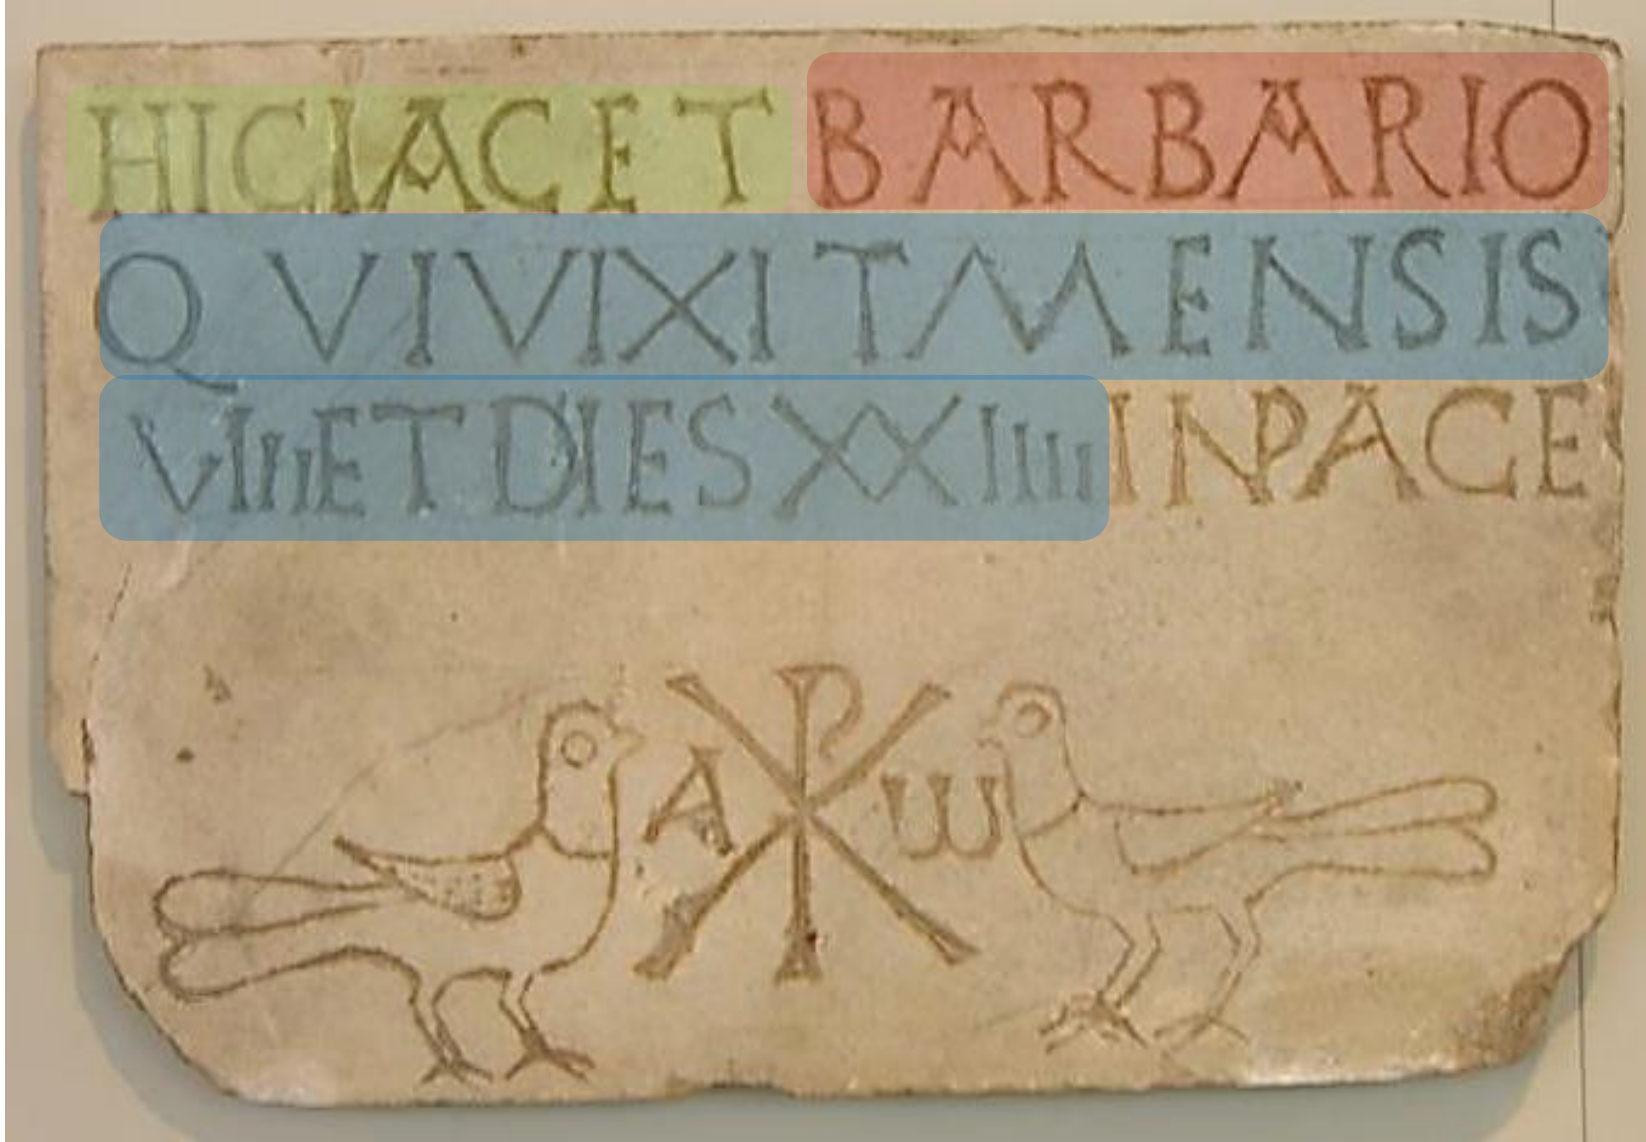 HIC IACET BARBARIO
QVI VIXIT MENSIS
VIII ET DIES XXIIII IN PACE
Α ☧ ω